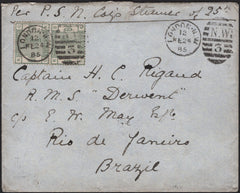 Per P. S. N. Coy's Steamer of 25th
LONDON · N.W
12
FE 24
85
N.W.
3
Captain H. C. Rigaud
R. M. S. "Derwent"
c/o E. W. May Esqre
Rio de Janeiro
Brazil